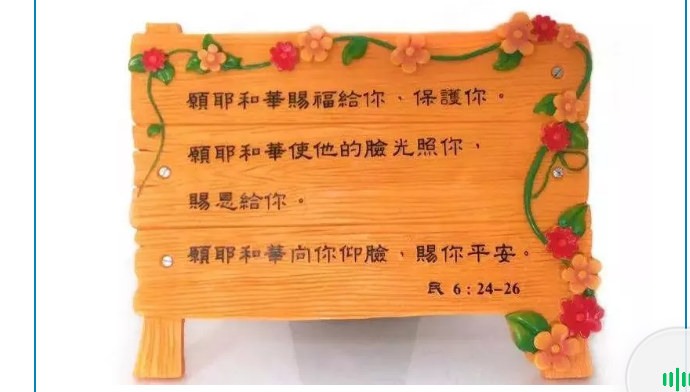 願耶和華賜福給你、保護你。
願耶和華使他的臉光照你，
賜恩給你。
願耶和華向你仰臉、賜你平安。
民 6：24-26